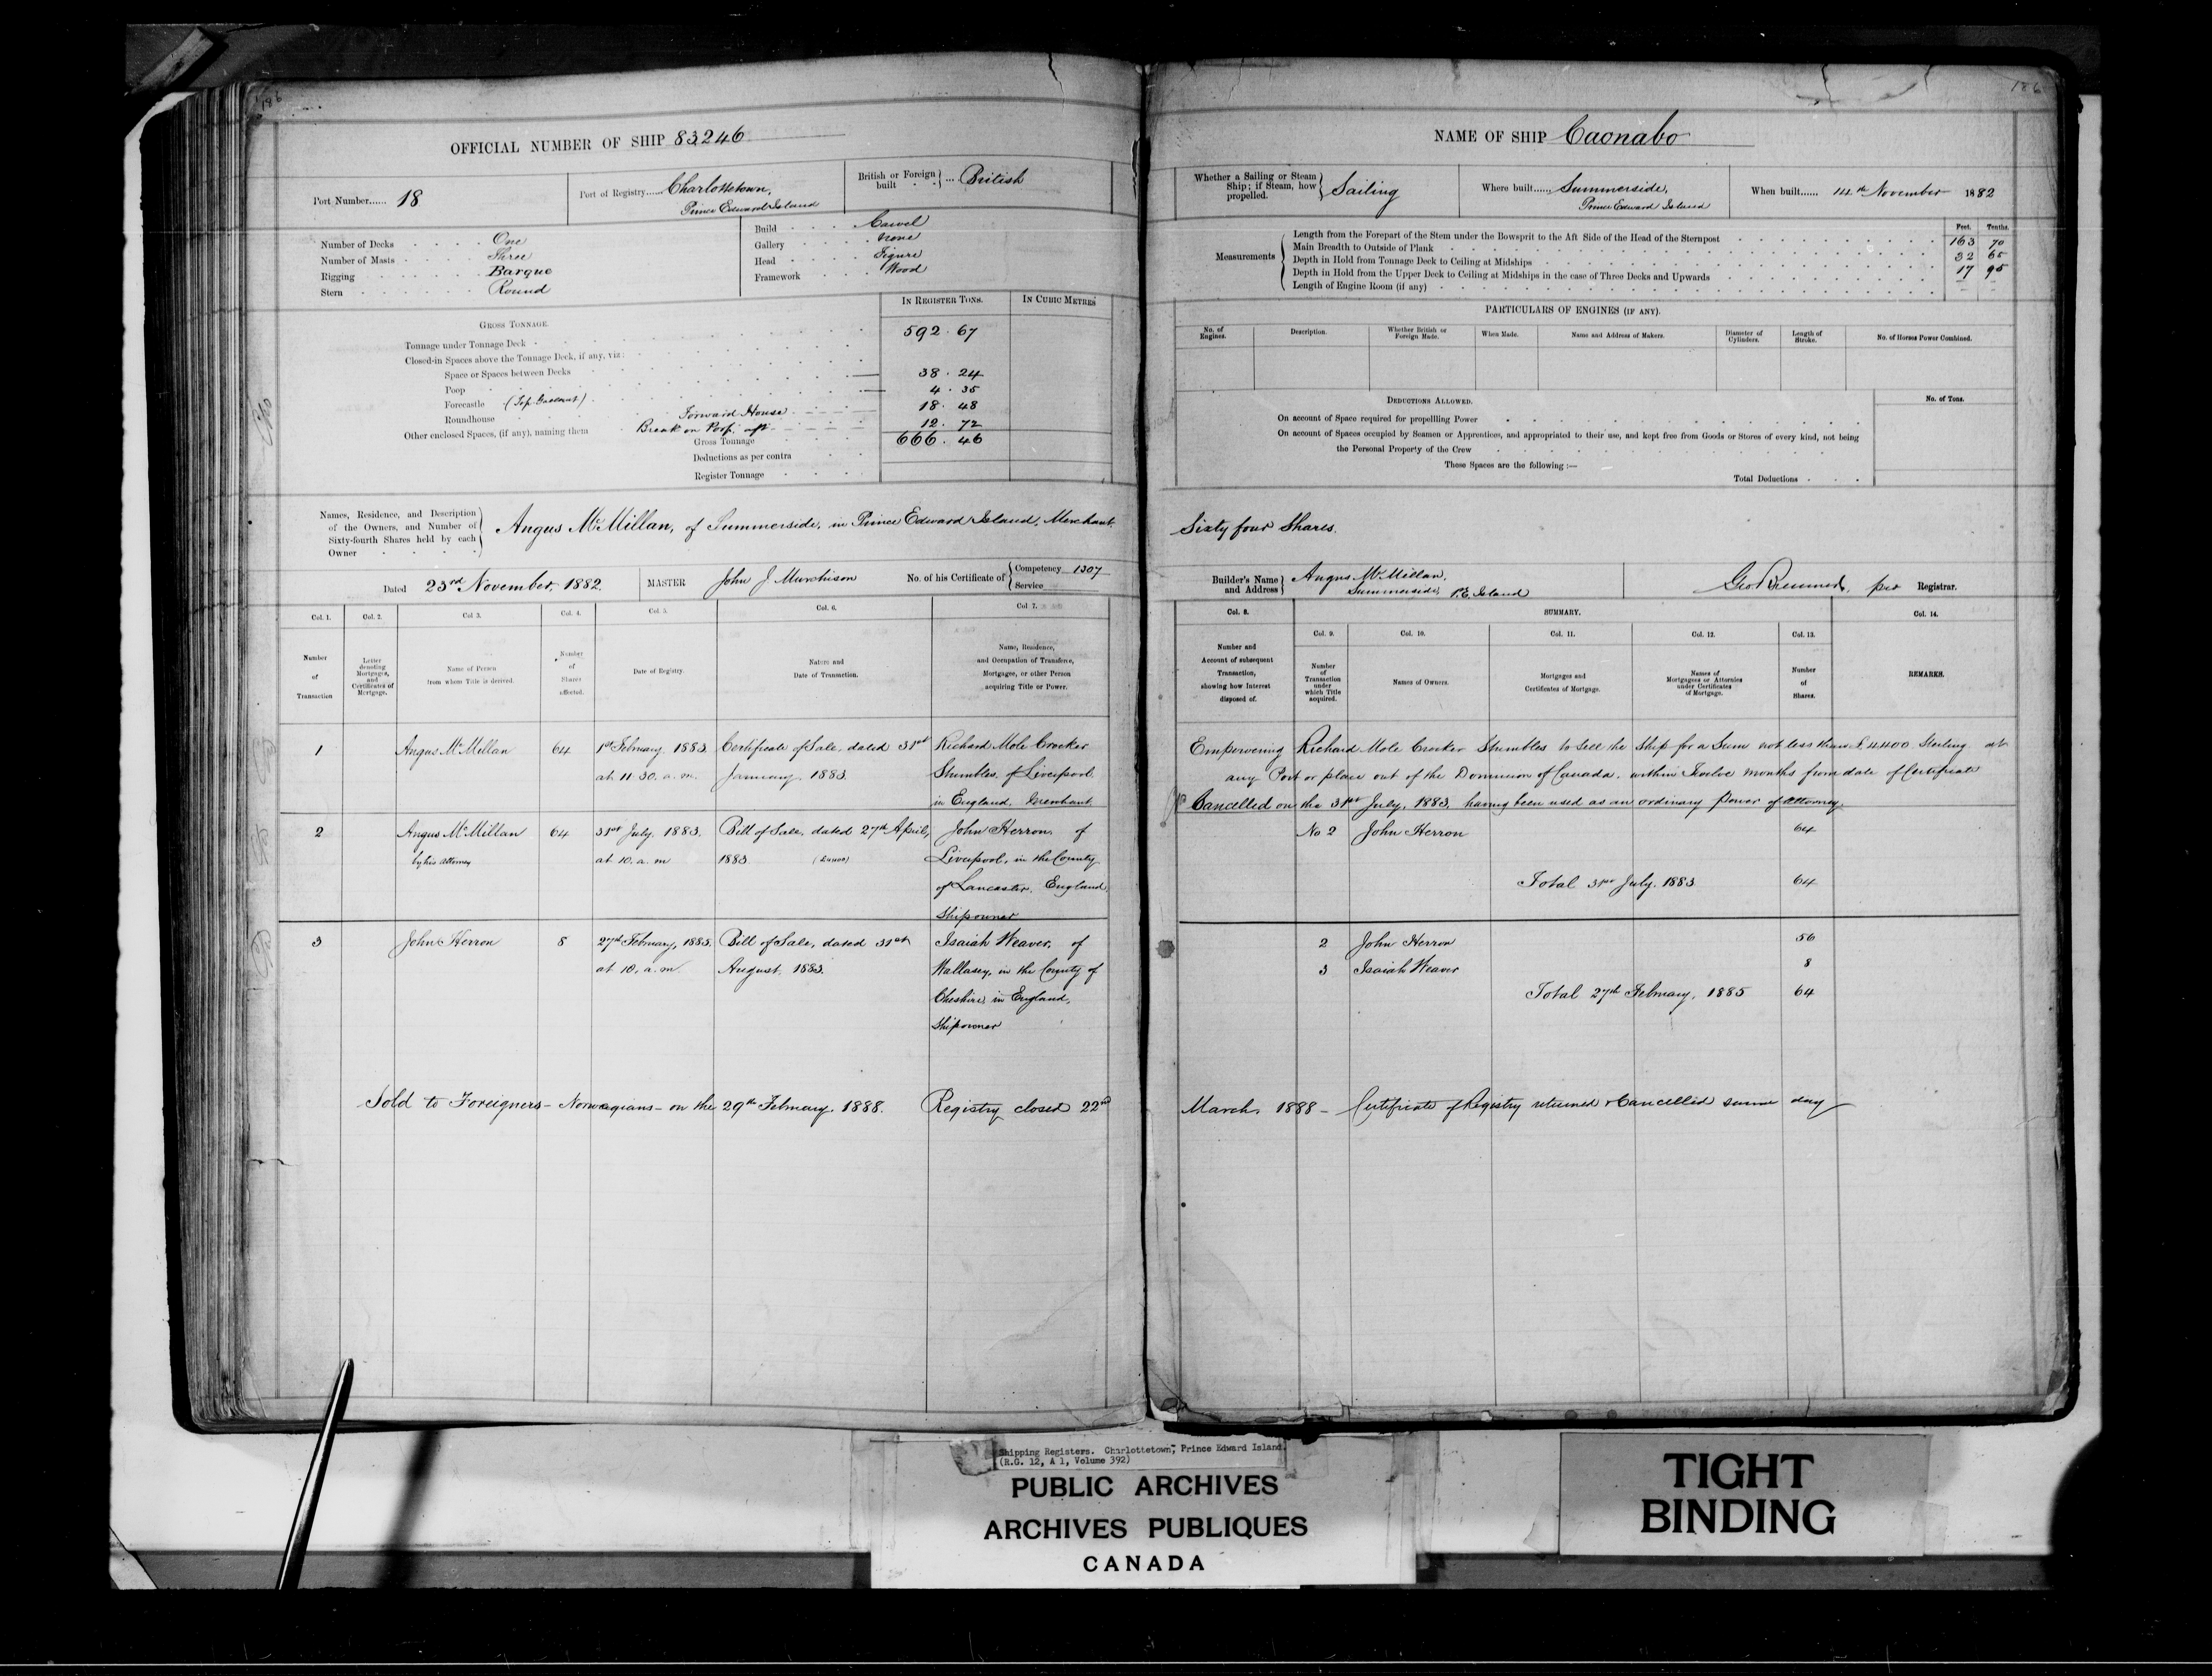 186
OFFICIAL NUMBER OF SHIP 83,246
Port Number...... 18
Port of Registry...... Charlottetown,
Prince Edward Island
British or Foreign built ... British
Number of Decks One
Number of Masts Three
Rigging Barque
Stern Round
Build Carvel
Gallery None
Head Figure
Framework Wood
IN REGISTER TONS. IN CUBIC METRES
GROSS TONNAGE.
Tonnage under Tonnage Deck 592.67
Closed-in Spaces above the Tonnage Deck, if any, viz:
Space or Spaces between Decks
Poop 38.24
Forecastle (Top Gallant) 4.35
Roundhouse Forward House 18.48
Other enclosed Spaces, (if any), naming them Break on Poop, aft 12.72
Gross Tonnage 666.46
Deductions as per contra
Register Tonnage
Names, Residence, and Description
of the Owners, and Number of
Sixty-fourth Shares held by each
Owner
Angus McMillan, of Summerside, in Prince Edward Island, Merchant
Dated 23rd November, 1882.
MASTER John J Murchison
No. of his Certificate of Competency 1307
Service
Col. 1. Col. 2. Col. 3. Col. 4. Col. 5. Col. 6. Col. 7.
Number of Transaction
Letter denoting Mortgages, and Certificates of Mortgage.
Name of Person from whom Title is derived.
Number of Shares affected.
Date of Registry.
Nature and Date of Transaction.
Name, Residence, and Occupation of Transferee, Mortgagee, or other Person acquiring Title or Power.
1 Angus McMillan 64 1st February 1883 Certificate of Sale, dated 31st Richard Mole Crocker
at 11.30. a.m. January, 1883. Stumbles, of Liverpool
in England, Merchant
2 Angus McMillan 64 31st July, 1883, Bill of Sale, dated 27th April, John Herron, of
by his attorney at 10. a.m 1883 Liverpool, in the County
of Lancaster, England
Shipowner
3 John Herron 8 27th February, 1885, Bill of Sale, dated 31st Isaiah Weaver, of
at 10. a.m. August, 1883. Wallasey, in the County of
Cheshire, in England,
Shipowner
Sold to Foreigners - Norwegians - on the 29th February, 1888. Registry closed 22nd
186
NAME OF SHIP Caonabo
Whether a Sailing or Steam
Ship; if Steam, how
propelled.
Sailing
Where built...... Summerside,
Prince Edward Island
When built...... 14th November 1882
Measurements
Feet. Tenths.
Length from the Forepart of the Stem under the Bowsprit to the Aft Side of the Head of the Sternpost 163 70
Main Breadth to Outside of Plank 32 65
Depth in Hold from Tonnage Deck to Ceiling at Midships 17 95
Depth in Hold from the Upper Deck to Ceiling at Midships in the case of Three Decks and Upwards
Length of Engine Room (if any)
PARTICULARS OF ENGINES (IF ANY).
No. of Engines.
Description.
Whether British or Foreign Made.
When Made.
Name and Address of Makers.
Diameter of Cylinders.
Length of Stroke.
No. of Horses Power Combined.
DEDUCTIONS ALLOWED.
No. of Tons.
On account of Space required for propellling Power
On account of Spaces occupied by Seamen or Apprentices, and appropriated to their use, and kept free from Goods or Stores of every kind, not being
the Personal Property of the Crew
These Spaces are the following:—
Total Deductions
Sixty four Shares.
Builder's Name
and Address
Angus McMillan,
Summerside, P.E. Island
Registrar.
Col. 8. SUMMARY. Col. 14.
Col. 9. Col. 10. Col. 11. Col. 12. Col. 13.
Number and Account of subsequent Transaction, showing how Interest disposed of.
Number of Transaction under which Title acquired.
Names of Owners.
Mortgages and Certificates of Mortgage.
Names of Mortgagees or Attornies under Certificates of Mortgage.
Number of Shares.
REMARKS.
Empowering Richard Mole Crocker Stumbles to sell the Ship for a Sum not less than £4400 Sterling at
any Port or place out of the Dominion of Canada, within Twelve months from date of Certificate
Cancelled on the 31st July, 1883, having been used as an ordinary Power of Attorney.
No 2 John Herron 64
Total 31st July, 1883 64
2 John Herron 56
3 Isaiah Weaver 8
Total 27th February, 1885 64
March, 1888 - Certificate of Registry returned & Cancelled same day
Shipping Registers. Charlottetown, Prince Edward Island.
(R.G. 12, A 1, Volume 392)
PUBLIC ARCHIVES
ARCHIVES PUBLIQUES
CANADA
TIGHT
BINDING